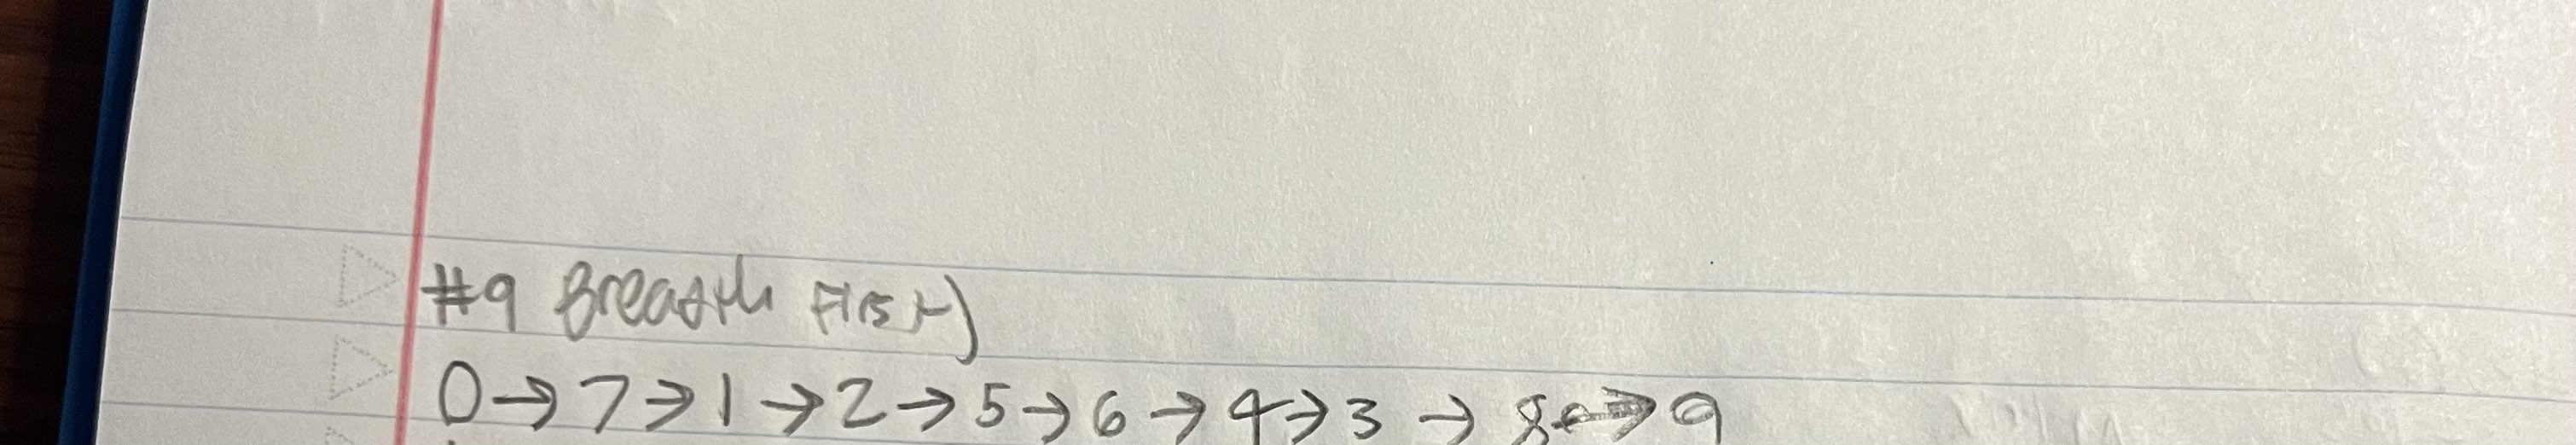 #9 Breadth First)
0→7→1→2→5→6→4→3→8→9